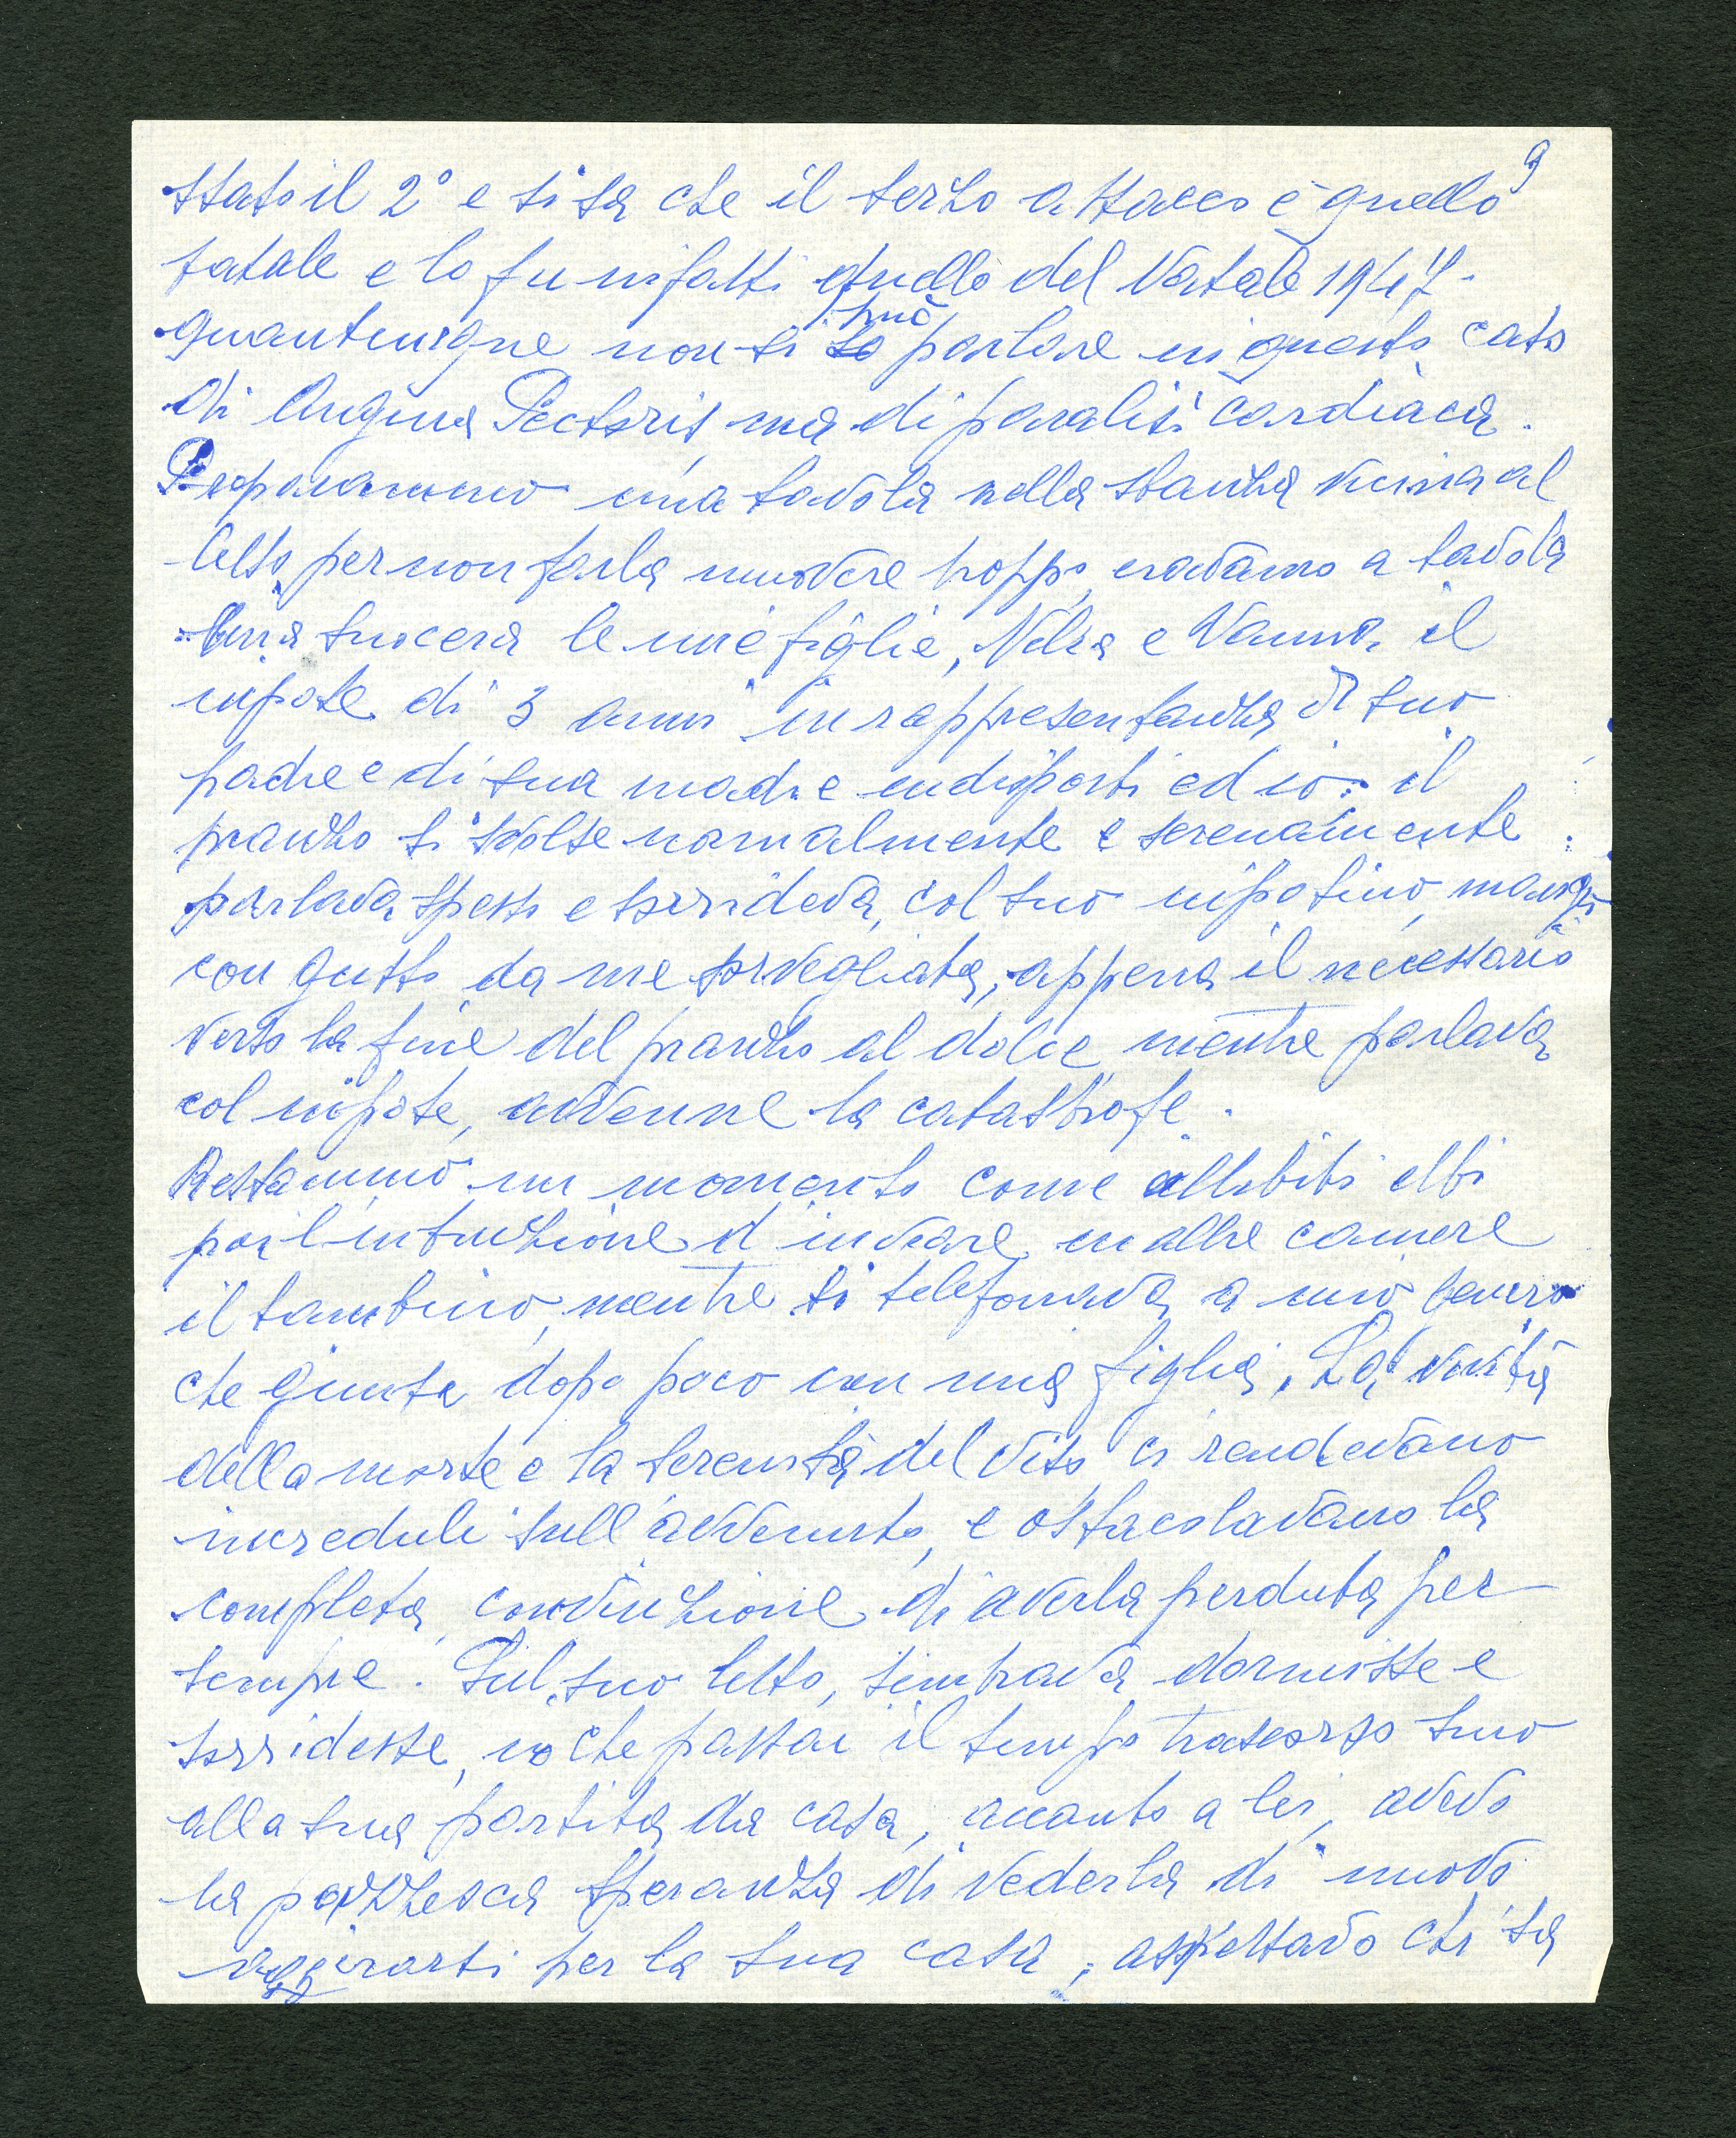 9
stato il 2° e si sa che il terzo attacco è quello
fatale e lo fu infatti quello del Natale 1947-
può
quantunque non si so parlare in questo caso
di Angina Pectoris, ma di paralisi cardiaca.
Preparammo una tavola nella stanza vicina al
letto per non farla muovere troppo, eravamo a tavola
mia suocera le mie figlie, e Vanna, il
nipote di 3 anni in rappresentanza di suo
padre e di sua madre indisposti ed io: il
pranzo si svolse normalmente e serenamente
parlava spesso e sorrideva, col suo nipotino, mangiò
con gusto da me sorvegliata, appena il necessario
verso la fine del pranzo al dolce, mentre parlava
col nipote, avvenne la catastrofe.
Restammo un momento come allibiti ebbi
poi l'intuizione d'inviare in altre camere
il bambino, mentre si telefonava a mio genero
che giunse dopo poco con mia figlia. La
della morte e la serenità del viso ci rendevano
increduli sull'avvenuto, e ostacolavano la
completa convinzione di averla perduta per
sempre. Sul suo letto, sembrava dormisse e
sorridesse, io che passai il tempo trascorso sino
alla sua partita da casa, accanto a lei, avevo
la pazzesca speranza di vederla di nuovo
aggirarsi per la sua casa, aspettavo chi sa